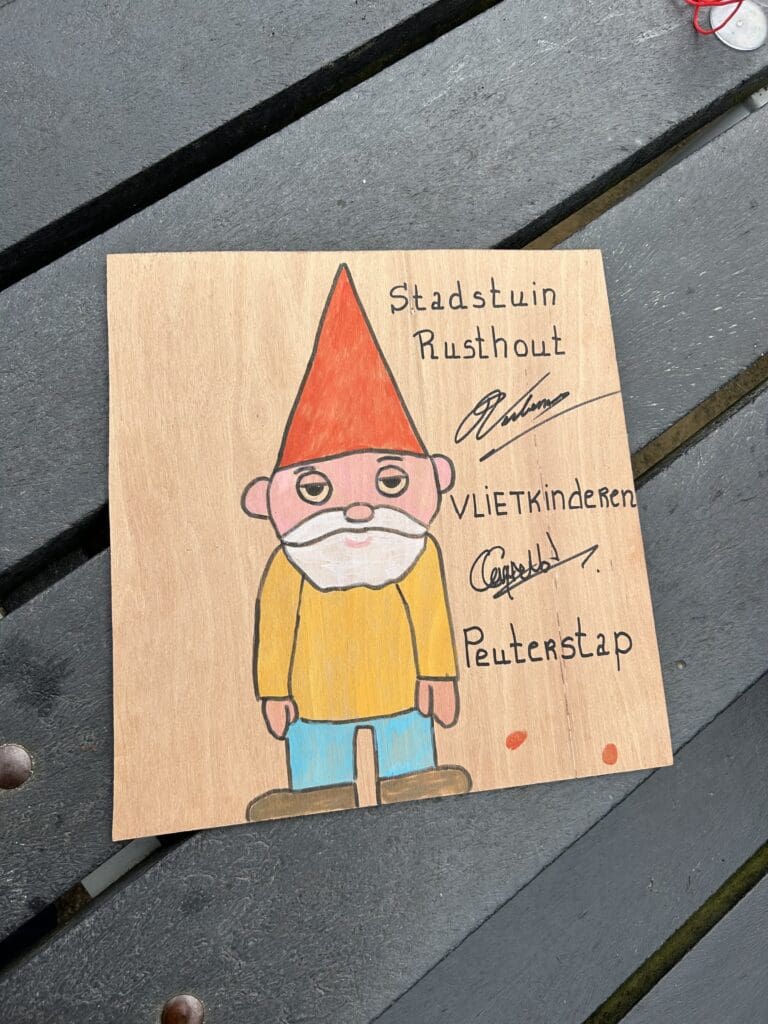 Stadstuin
Rusthout
VLIETKinderen
Peuterstap